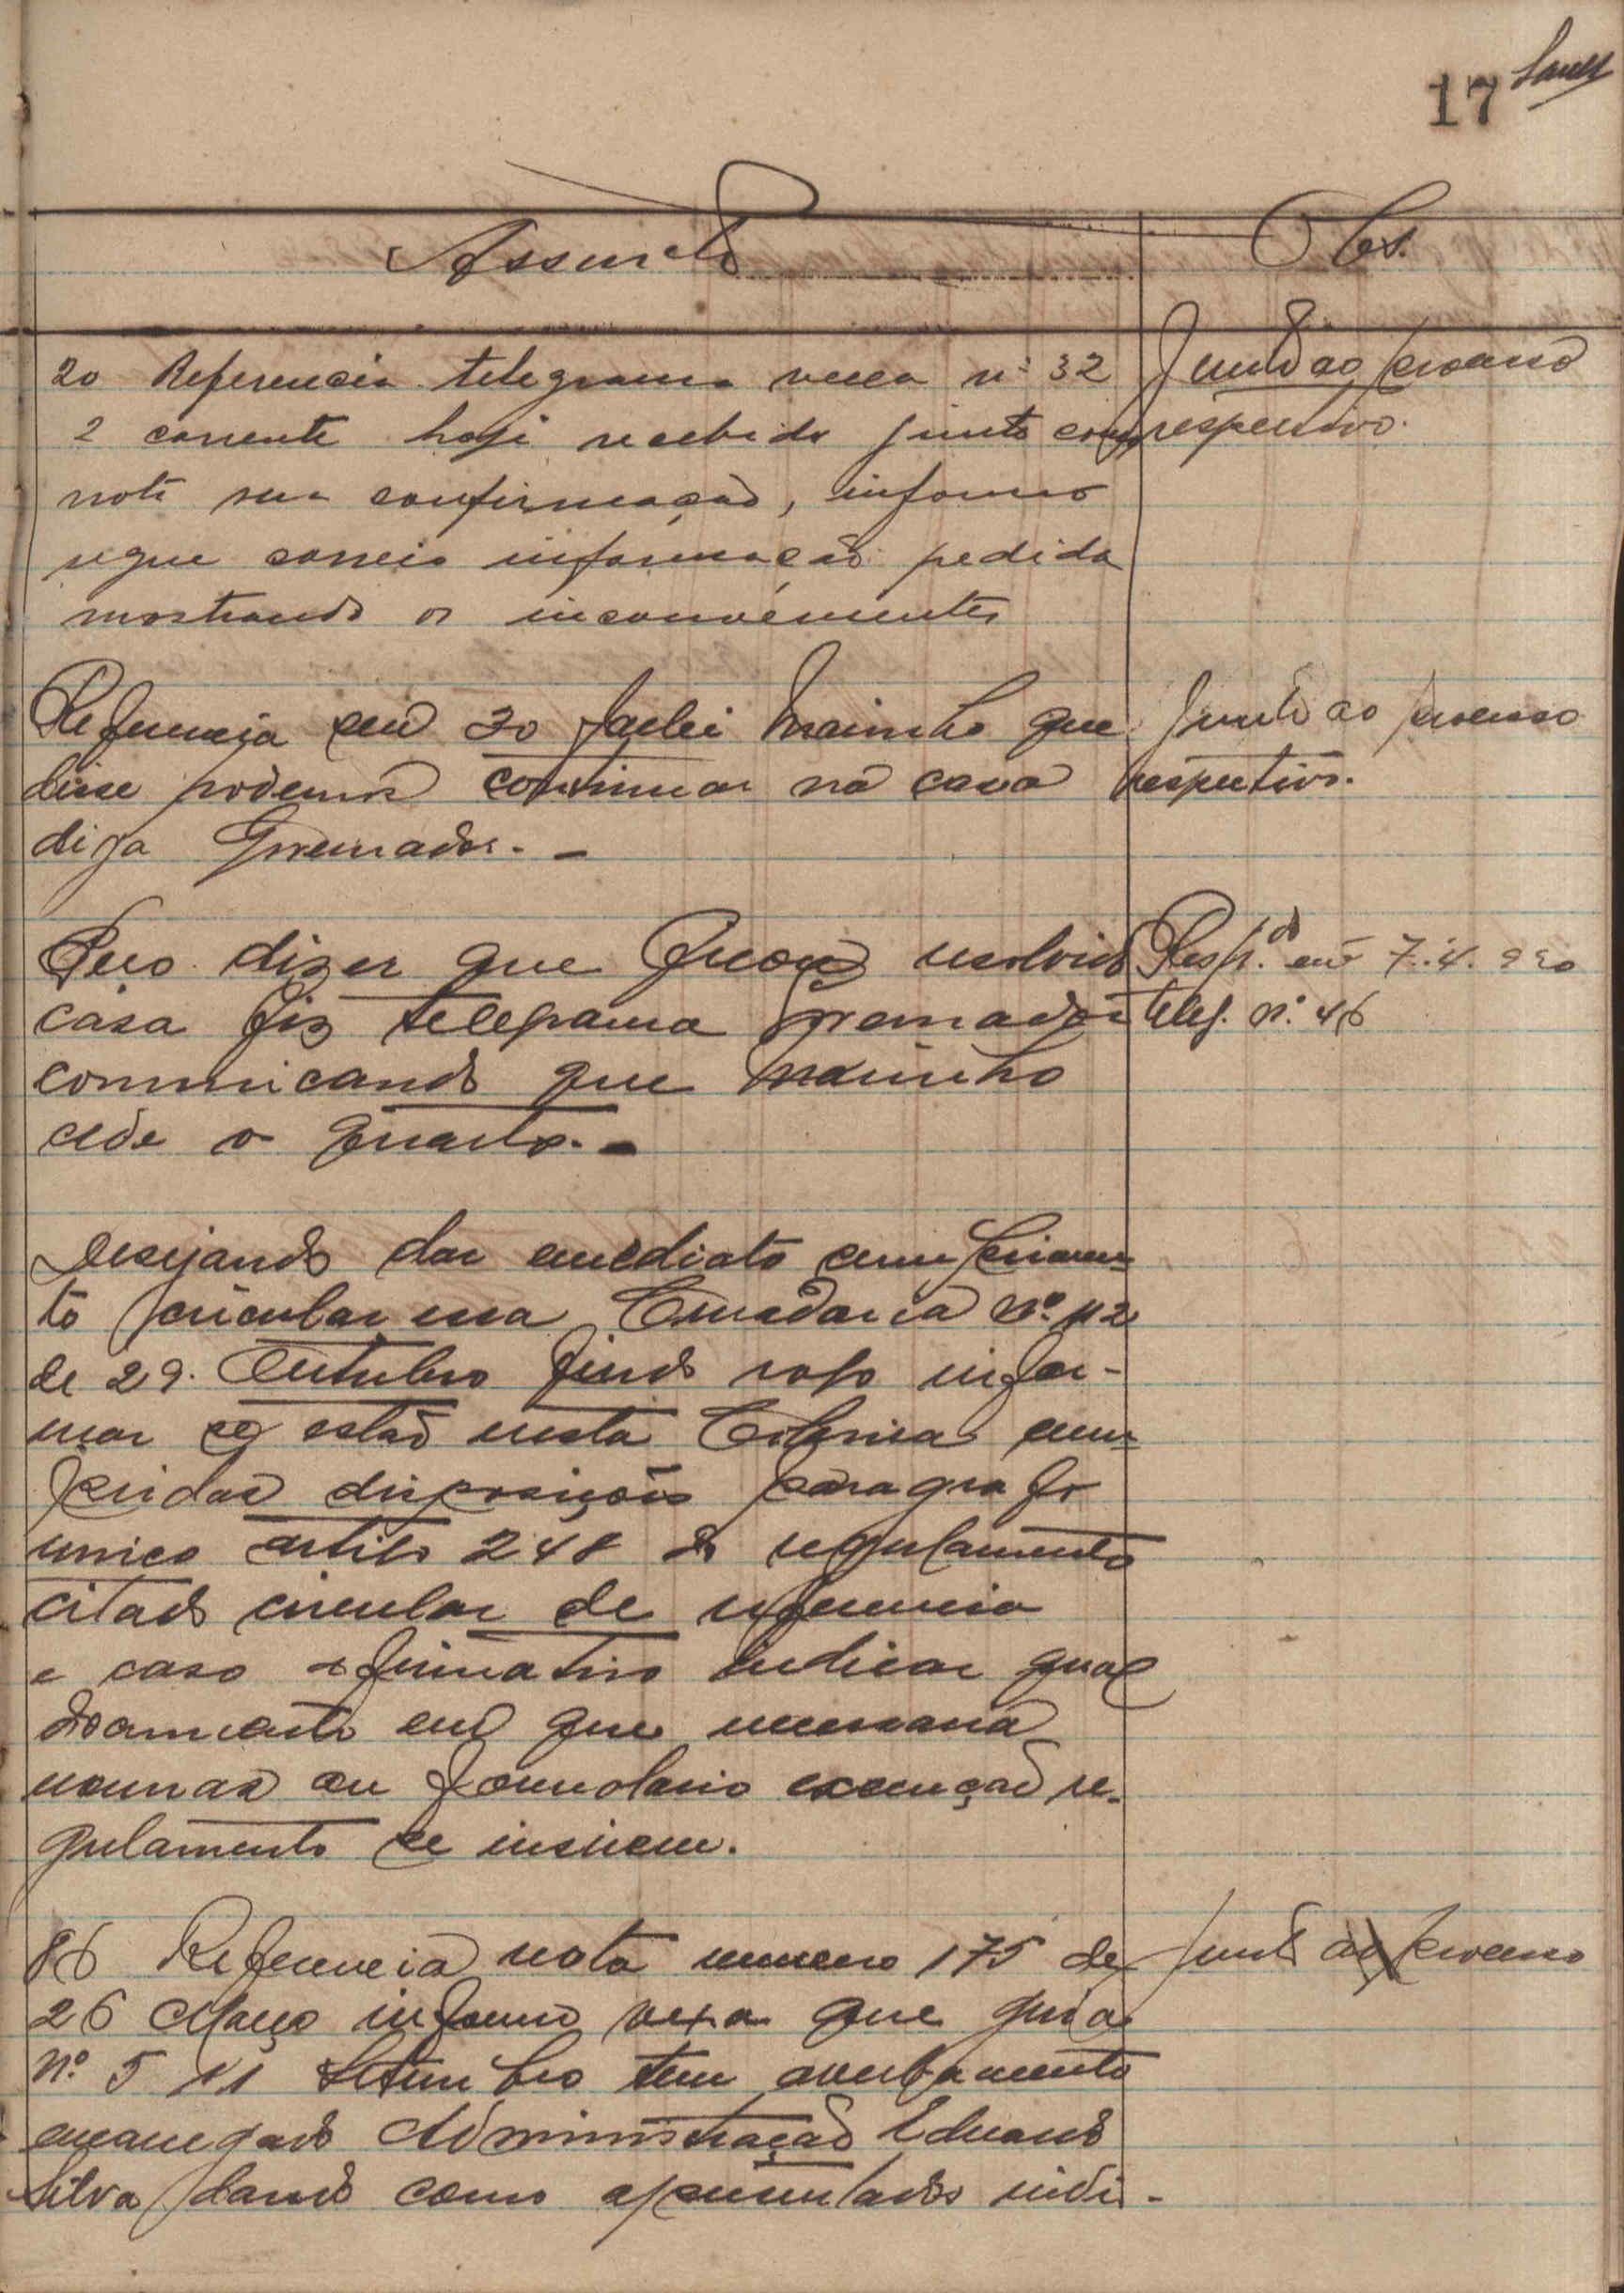 17
Assunto
Obs.
20 Referencia telegrama vexa nº 32
2 corrente hoje recebido junto com
nota sua confirmação, informo
segue correio informação pedida
mostrando os inconvenientes
Junto ao processo
respectivo.
Referencia seu 30 falei Marinho que
disse podemos continuar na casa
diga Governador. -
Junto ao processo
respectivo.
Peço dizer que ficou resolvido
casa fiz telegrama Governador
comunicando que Marinho
cede o quarto. -
Resp.do em 7.4.930
teleg. nº 46
Desejando dar imediato cumprimen-
to circular essa Curadoria nº 112
de 29. Outubro findo rogo infor-
mar se estão nesta Colonia cum-
pridas disposições paragrafo
unico artigo 248 do regulamento
citado circular de referencia
e caso afirmativo indicar qual
documento em que necessaria
normas ou formolario execução re-
gulamento se inserem.
86 Referencia nota numero 175 de
26 Março informo vexa que guia
Nº 5 11 Setembro tem averbamento
encarregado Administração Eduardo
Silva dando como apresentados indi-
Junto ao processo